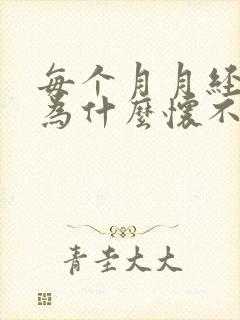 每个月月经
為什麼懷不
青圭大大